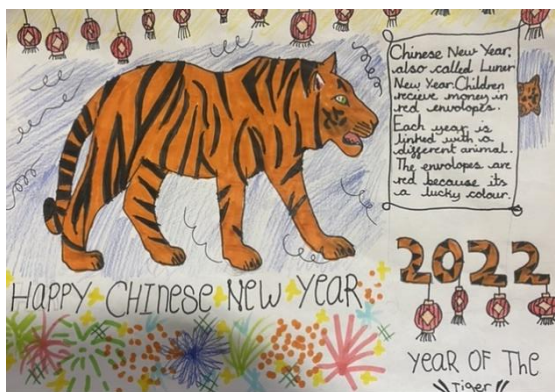 Chinese New Year,
also called Luner
New Year. Children
recieve money in
red envolopes.
Each year is
linked with a
different animal.
The envolopes are
red because its
a lucky colour.
2022
HAPPY CHINESE NEW YEAR
YEAR OF The
Tiger